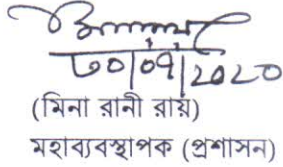 ৩০/০৭/২০২০
(মিনা রানী রায়)
মহাব্যবস্থাপক (প্রশাসন)